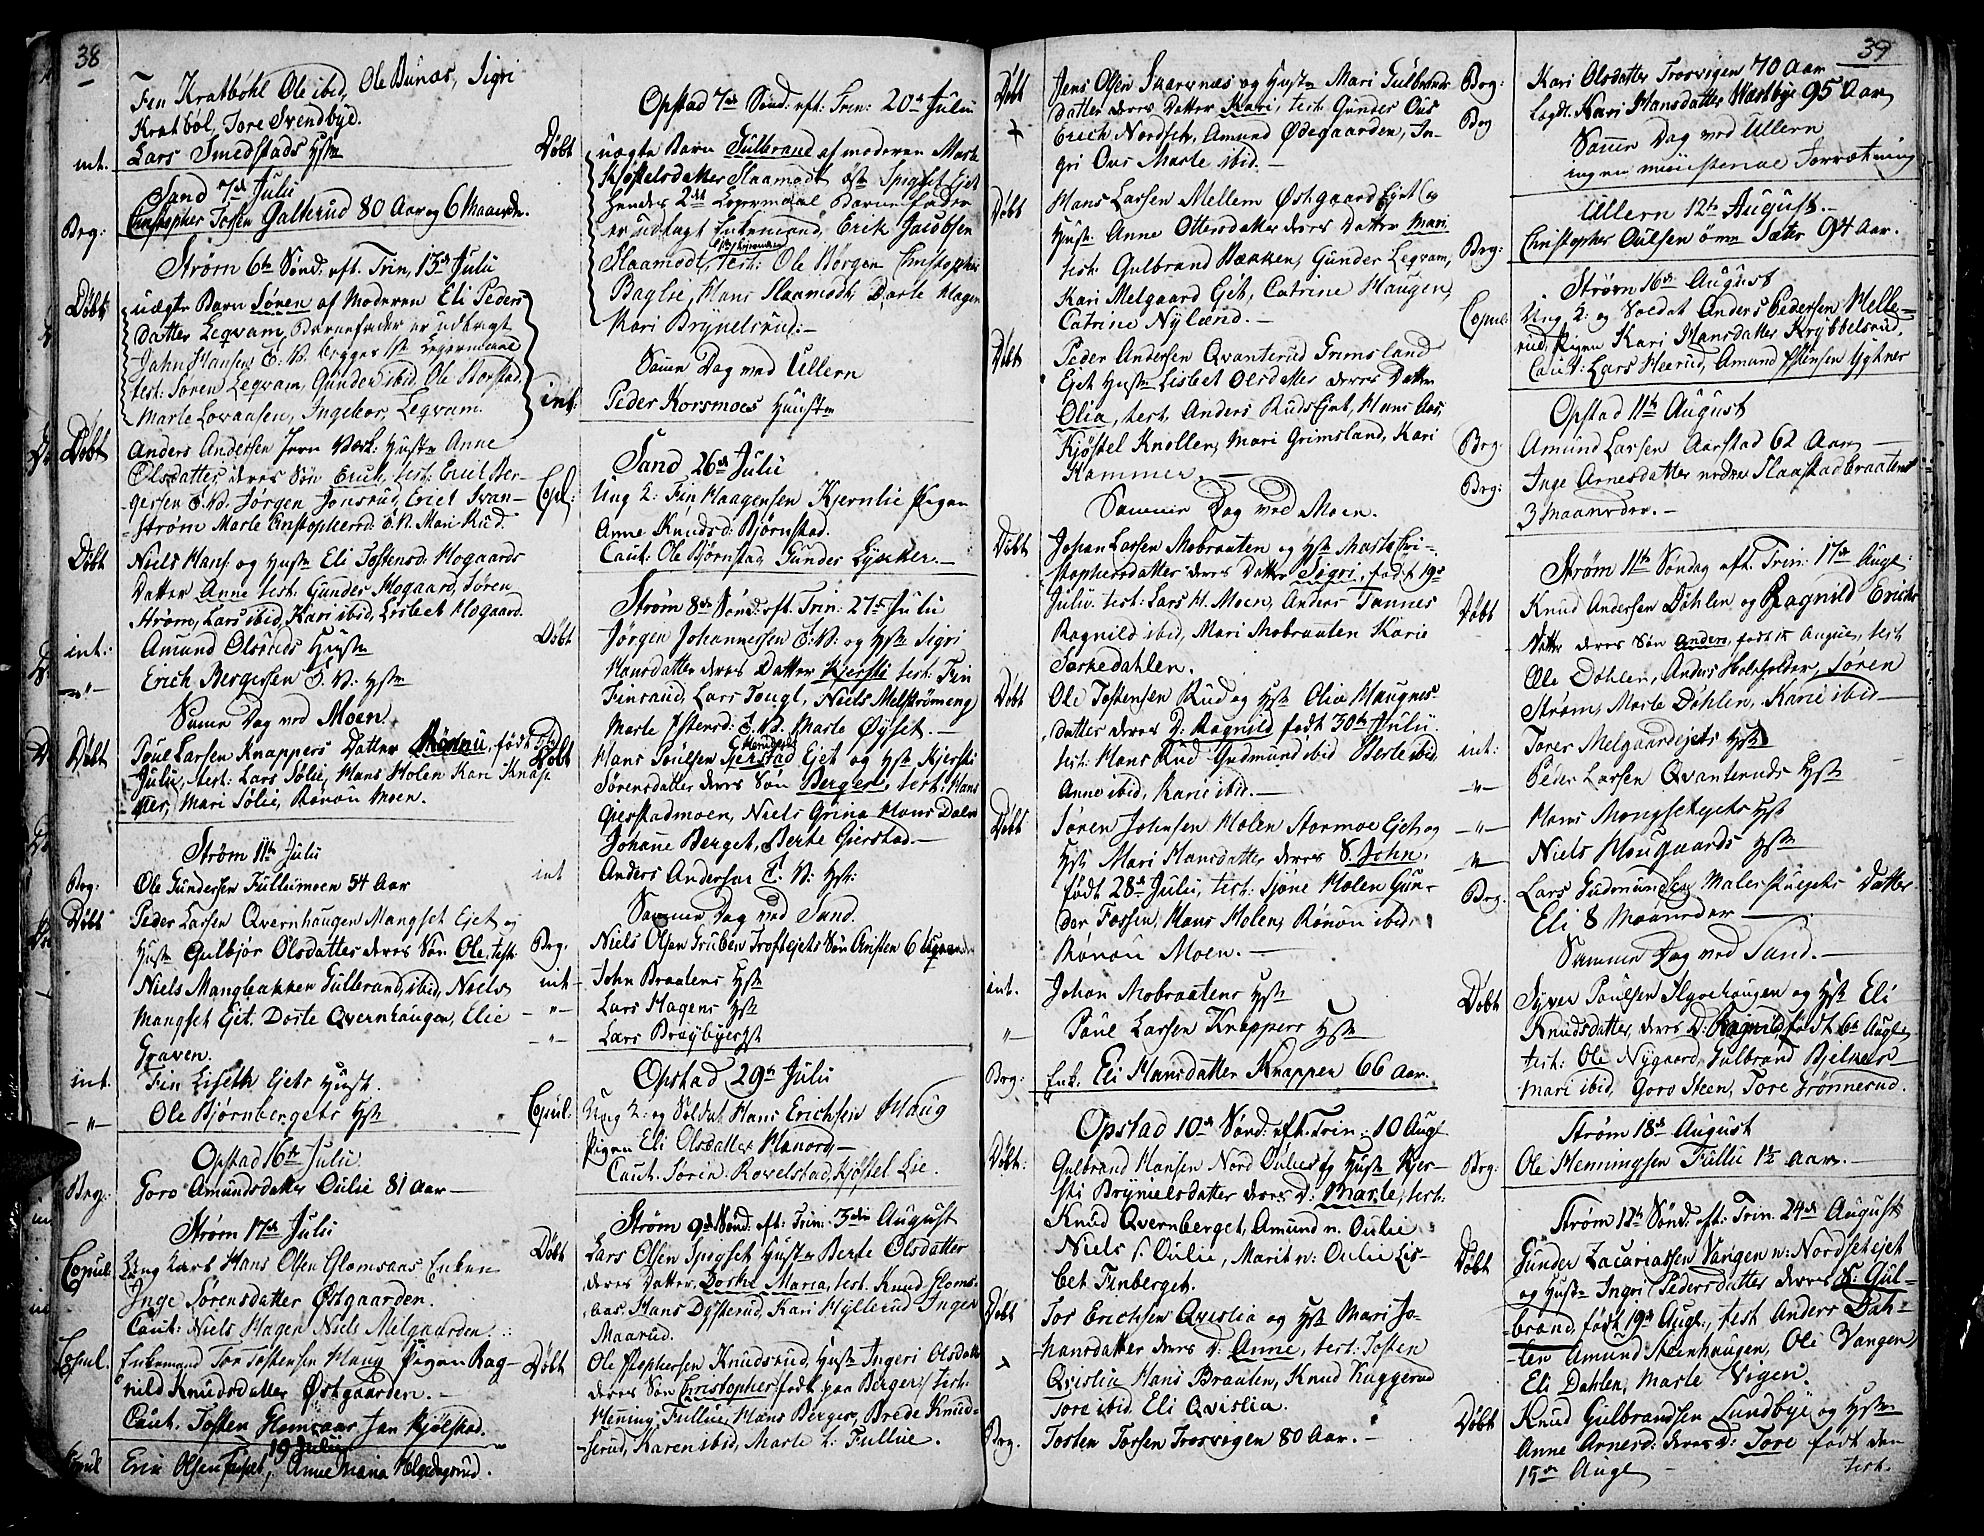 38
Fin Kratbøhl Ole ibid, Ole Bunæs, Sigri
Kratbøl, Tore Svendbye.
int. Lars Smedstads Hst
Sand 7de Julii
Beg: Christopher Tosten Galterud 80 Aar og 6 Maaneder.
Strøm 6te Sønd. eft. Trin. 13de Julii
Døbt uægte Barn Søren af Moderen Eli Peders
Datter Leqvam, Barnefader er udlagt
John Hansen E. V. begges 1ste Leiermaal
test: Søren Leqvam, Gunder ibid, Ole Storstad,
Marte Lovaasen, Ingebor Leqvam.
Døbt Anders Andersen Jern Verk: Hustr Anne
Olsdatter, deres Søn Erich, test: Erich Ber-
gersen E. V. Jørgen Jonsrud, Erich Svan-
strøm Marte Christophersd: E. V. Mari Rud.
Døbt Niels Hans. og Hustr Eli Tostensd. Mogaards
Datter Anne test: Gunder Mogaard, Søren
Strøm, Lars ibid, Kari ibid, Lisbet Mogaard.
int: Amund Olsruds Hustr
-"- Erich Bergersen E. V. Hst
Samme Dag ved Moen
Døbt Poul Larsen Knappers Datter Rønnu, født
Julii, test: Lars Sølie, Hans Holen Kari Knap-
per, Mari Sølie, Rønou Moen.
Strøm 11te Julii
Beg: Ole Gundersen Fulliemoen 54 Aar
Døbt Peder Larsen Qvernhaugen Mangset Ejet og
Hustr Gulbjør Olsdatter deres Søn Ole, test:
Niels Mangbakken Gulbrand ibid, Niels
Mangset Ejet. Dorte Qvernhaugen, Elie
Graven.
int. Fin Liseth Ejets Hust.
-"- Ole Bjørnbergets Hst
Opstad 16te Julii
Beg: Goro Amundsdatter Oulie 81 Aar
Strøm 17de Julii
Copul. Ung Karl Hans Olsen Glomsaas Enken
Inge Sørensdatter Østgaarden.
Caut: Niels Hagen Niels Melgaarden.
Copul. Enkemand Tor Tostensen Haug Pigen Rag-
nild Knudsdatter Østgaarden.
Caut. Tosten Glomsaas Jan Kjølstad.
19 Julii
Copul Erik Olsen, Anne Maria Helgedagsrud.
Opstad 7de Sønd. eft: Trin: 20de Julii
Døbt uægte Barn Gulbrand af moderen Marte
Kjøstelsdatter Slaamodt øst Spigset Ejet
hendes 2det Leiermaal Barnefader
er udlagt Enkemand Erik Jacobsen
Slaamodt, test: Ole Børgen Christopher
Baglie, Hans Slaamodt, Dorte Hagen
Kari Brynelsrud.
Samme Dag ved Ullern
int: Peder Korsmoes Hustr
Sand 26de Julii
Copl: Ung K: Fin Haagensen Kjernlie Pigen
Anne Knudsd: Bjørnstad.
Caut: Ole Bjørnstad Gunder Lycker.
Strøm 8de Sønd: eft. Trin: 27de Julii
Døbt Jørgen Johannessen E. V. og Hst Sigri
Hansdatter deres Datter Kjersti test: Fin
Finrud, Lars Fougl, Niels Melstrømeng
Marte Iversd: E. V. Marte Øyset.
Døbt Hans Poulsen Gjerstad Ejet og Hst Kjersti
Sørensdatter deres Søn Berger, test: Hans
Gjerstadmoen, Niels Grina Hans Dalen
Johane Berget, Berte Gjerstad.
int Anders Andersen E. V: Hst:
Samme Dag ved Sand.
Beg. Niels Olsen Gruben Troftejets Søn Ansten 6
int John Braatens Hst
-"- Lars Hagens Hst
-"- Lars Brøybyes Hst
Opstad 29de Julii
Copul. Ung K: og Soldat Hans Erichsen Haug
Pigen Eli Olsdatter Hanord
Caut. Søren Rovelstad, Kjøstel Lie.
Strøm 9de Sønd: eft: Trin: 3die August
Døbt Lars Olsen Spigset Hustr Berte Olsdatter
deres Datter Dorthe Maria, test: Knud Gloms-
aas. Hans Dysterud, Kari Hyllerud Inger
Maarud.
Døbt Ole Stophersen Knudsrud, Hustr Ingeri Olsdatter
deres Søn Christopher født paa Berger, test:
Henning Fullie, Hans Berger, Brede Knud-
serud, Karen ibid, Marte L: Fullie.
39
Døbt Jens Olsen Skarvnæs og Hustr Mari Gulbrands
Datter deres Datter Kari, test: Gunder Ous
Erich Nordset, Amund Ødegaarden, In-
gri Ous Marte ibid.
Døbt Hans Larsen Mellem Østgaard Ejet og
Hustr. Anne Ottersdatter deres Datter Mari
test: Gulbrand Bakken, Gunder Leqvam,
Kari Melgaard Ejet, Catrine Haugen,
Catrine Nylænd.
Døbt Peder Andersen Qvanterud Grimsland
Ejet Hustr Lisbet Olsdatter deres Datter
Olia, test. Anders Ruds Ejet, Hans Aas,
Kjøstel Knollen, Mari Grimsland, Kari
Hammer.
Samme Dag ved Moen.
Døbt Johan Larsen Mobraaten og Hst Marte Chri-
stophersdatter deres Datter Sigri, fød. d. 19de
Julii. test: Lars H. Moen, Anders Tannes
Ragnild ibid, Mari Mobraaten Karie
Sorkedahlen.
Døbt Ole Tostensen Rud og Hst Olia Haagens-
datter deres D: Ragnild født 30te Julii
test: Hans Rud Gudmund ibid Berte ibid
Anne ibid, Karie ibid.
Døbt Søren Johnsen Holen Stormoe Ejet og
Hst Mari Hansdatter deres S. John,
født 28de Julii, test: Sjøne Holen Gun-
der Fossen, Hans Holen, Rønou ibid,
Rønou Moen.
int. Johan Mobraatens Hst
" Poul Larsen Knappers Hst
Beg: Enk. Eli Hansdatter Knapper 66 Aar.
Opstad 10de Sønd: eft. Trin: 10 Augt
Døbt: Gulbrand Hansen Nord Oulie og Hustr Kjer-
sti Brynielsdatter deres D: Marte, test:
Knud Qvernberget, Amund n. Oulie
Niels S. Oulie, Marit n: Oulie Lis-
bet Finberget.
Døbt Tor Erichsen Qvislia og Hst Mari Jo-
hansdatter deres D: Anne, test: Tosten
Qvislia Hans Braaten, Knud Kuggerud
Tore ibid. Eli Qvislia.
Beg. Tosten Torsen Trosvigen 80 Aar.
Beg: Kari Olsdatter Trosvigen 70 Aar
Beg Logd: Kari Hansdatter Wæstbye 95 Aar
Samme Dag ved Ullern
ingen ministerial Forretning
Ullern 12te August.
Beg: Christopher Oulsen Sæter 94 Aar.
Strøm 16de August
Copul: Ung K: og Soldat Anders Pedersen Melle-
rud, Pigen Kari Hansdatter Krybbelsrud,
Caut: Lars Heerud, Amund Østensen Ughnes
Opstad 11te August
Beg: Amund Larsen Aarstad 62 Aar
Beg: Inge Arnesdatter nedre Slaastad braaten
3 Maaneder.
Strøm 11te Søndag eft. Trin: 17de Augt
Døbt Knud Andersen Døhlen og Ragnild Erichs
datter deres Søn Anders, født August, test
Ole Døhlen, Anders, Søren
Strøm, Marte Døhlen, Karie ibid
int: Torer Melgaardejets Hst
-"- Peder Larsen Qvanteruds Hst
-"- Hans Mangsetejets Hst
-"- Niels Mougaards Hst
Beg. Lars Gudmundsen Malerstuejets Datter
Eli 8 Maaneder
Samme Dag ved Sand.
Døbt Syver Poulsen Skyvehaugen og Hst Eli
Knudsdatter, deres D: Ragnild, født 6te Augt
test: Ole Nygaard, Gulbrand Bjelker
Mari ibid, Goro Steen, Tore Grønnerud.
Strøm 18de August
Beg: Ole Henningsen Fullie 1½ Aar.
Strøm 12te Sønd: eft: Trin. 24de August
Døbt Gunder Zacariassen Vangen n: Nordsetejet
og Hustr Ingri Pedersdatter deres S: Gul-
brand født 19de Augt:, test Anders Dah-
len Amund Steenhaugen, Ole Vangen,
Eli Dahlen, Marte Vigen.
Døbt Knud Gulbrandsen Sundbye og Hst
Anne Arnesd: deres D: Tore født den
15de Augt test.